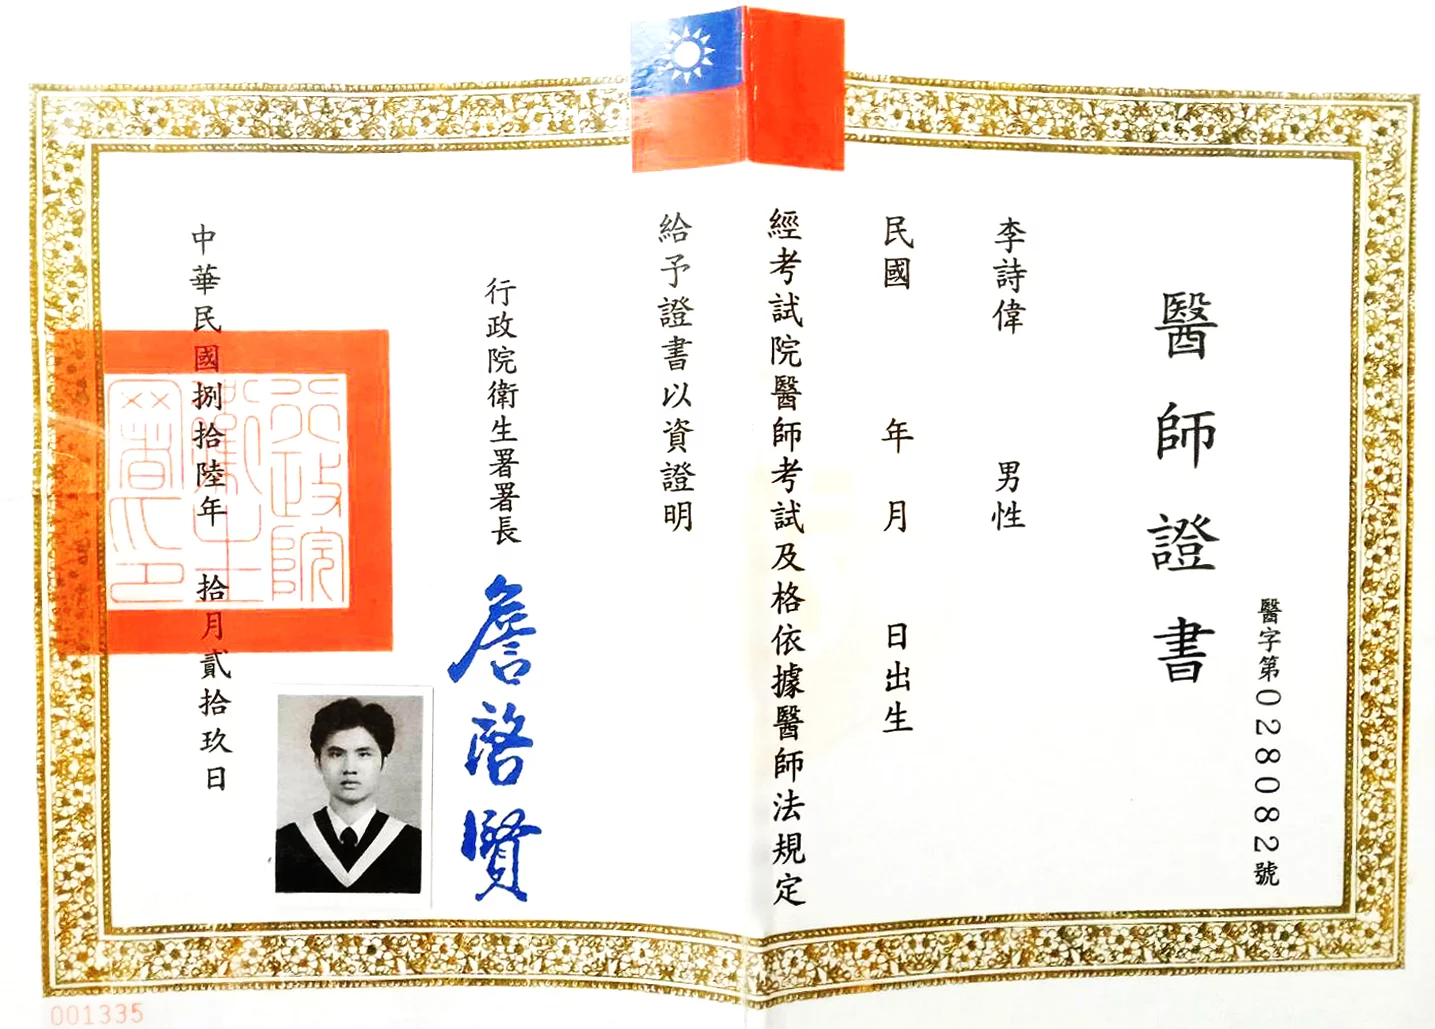 醫師證書
醫字第028082號
李詩偉 男性
民國 年 月 日出生
經考試院醫師考試及格依據醫師法規定
給予證書以資證明
行政院衛生署署長 詹啓賢
中華民國捌拾陸年 拾月貳拾玖日
行政院
衛生
署印
001335